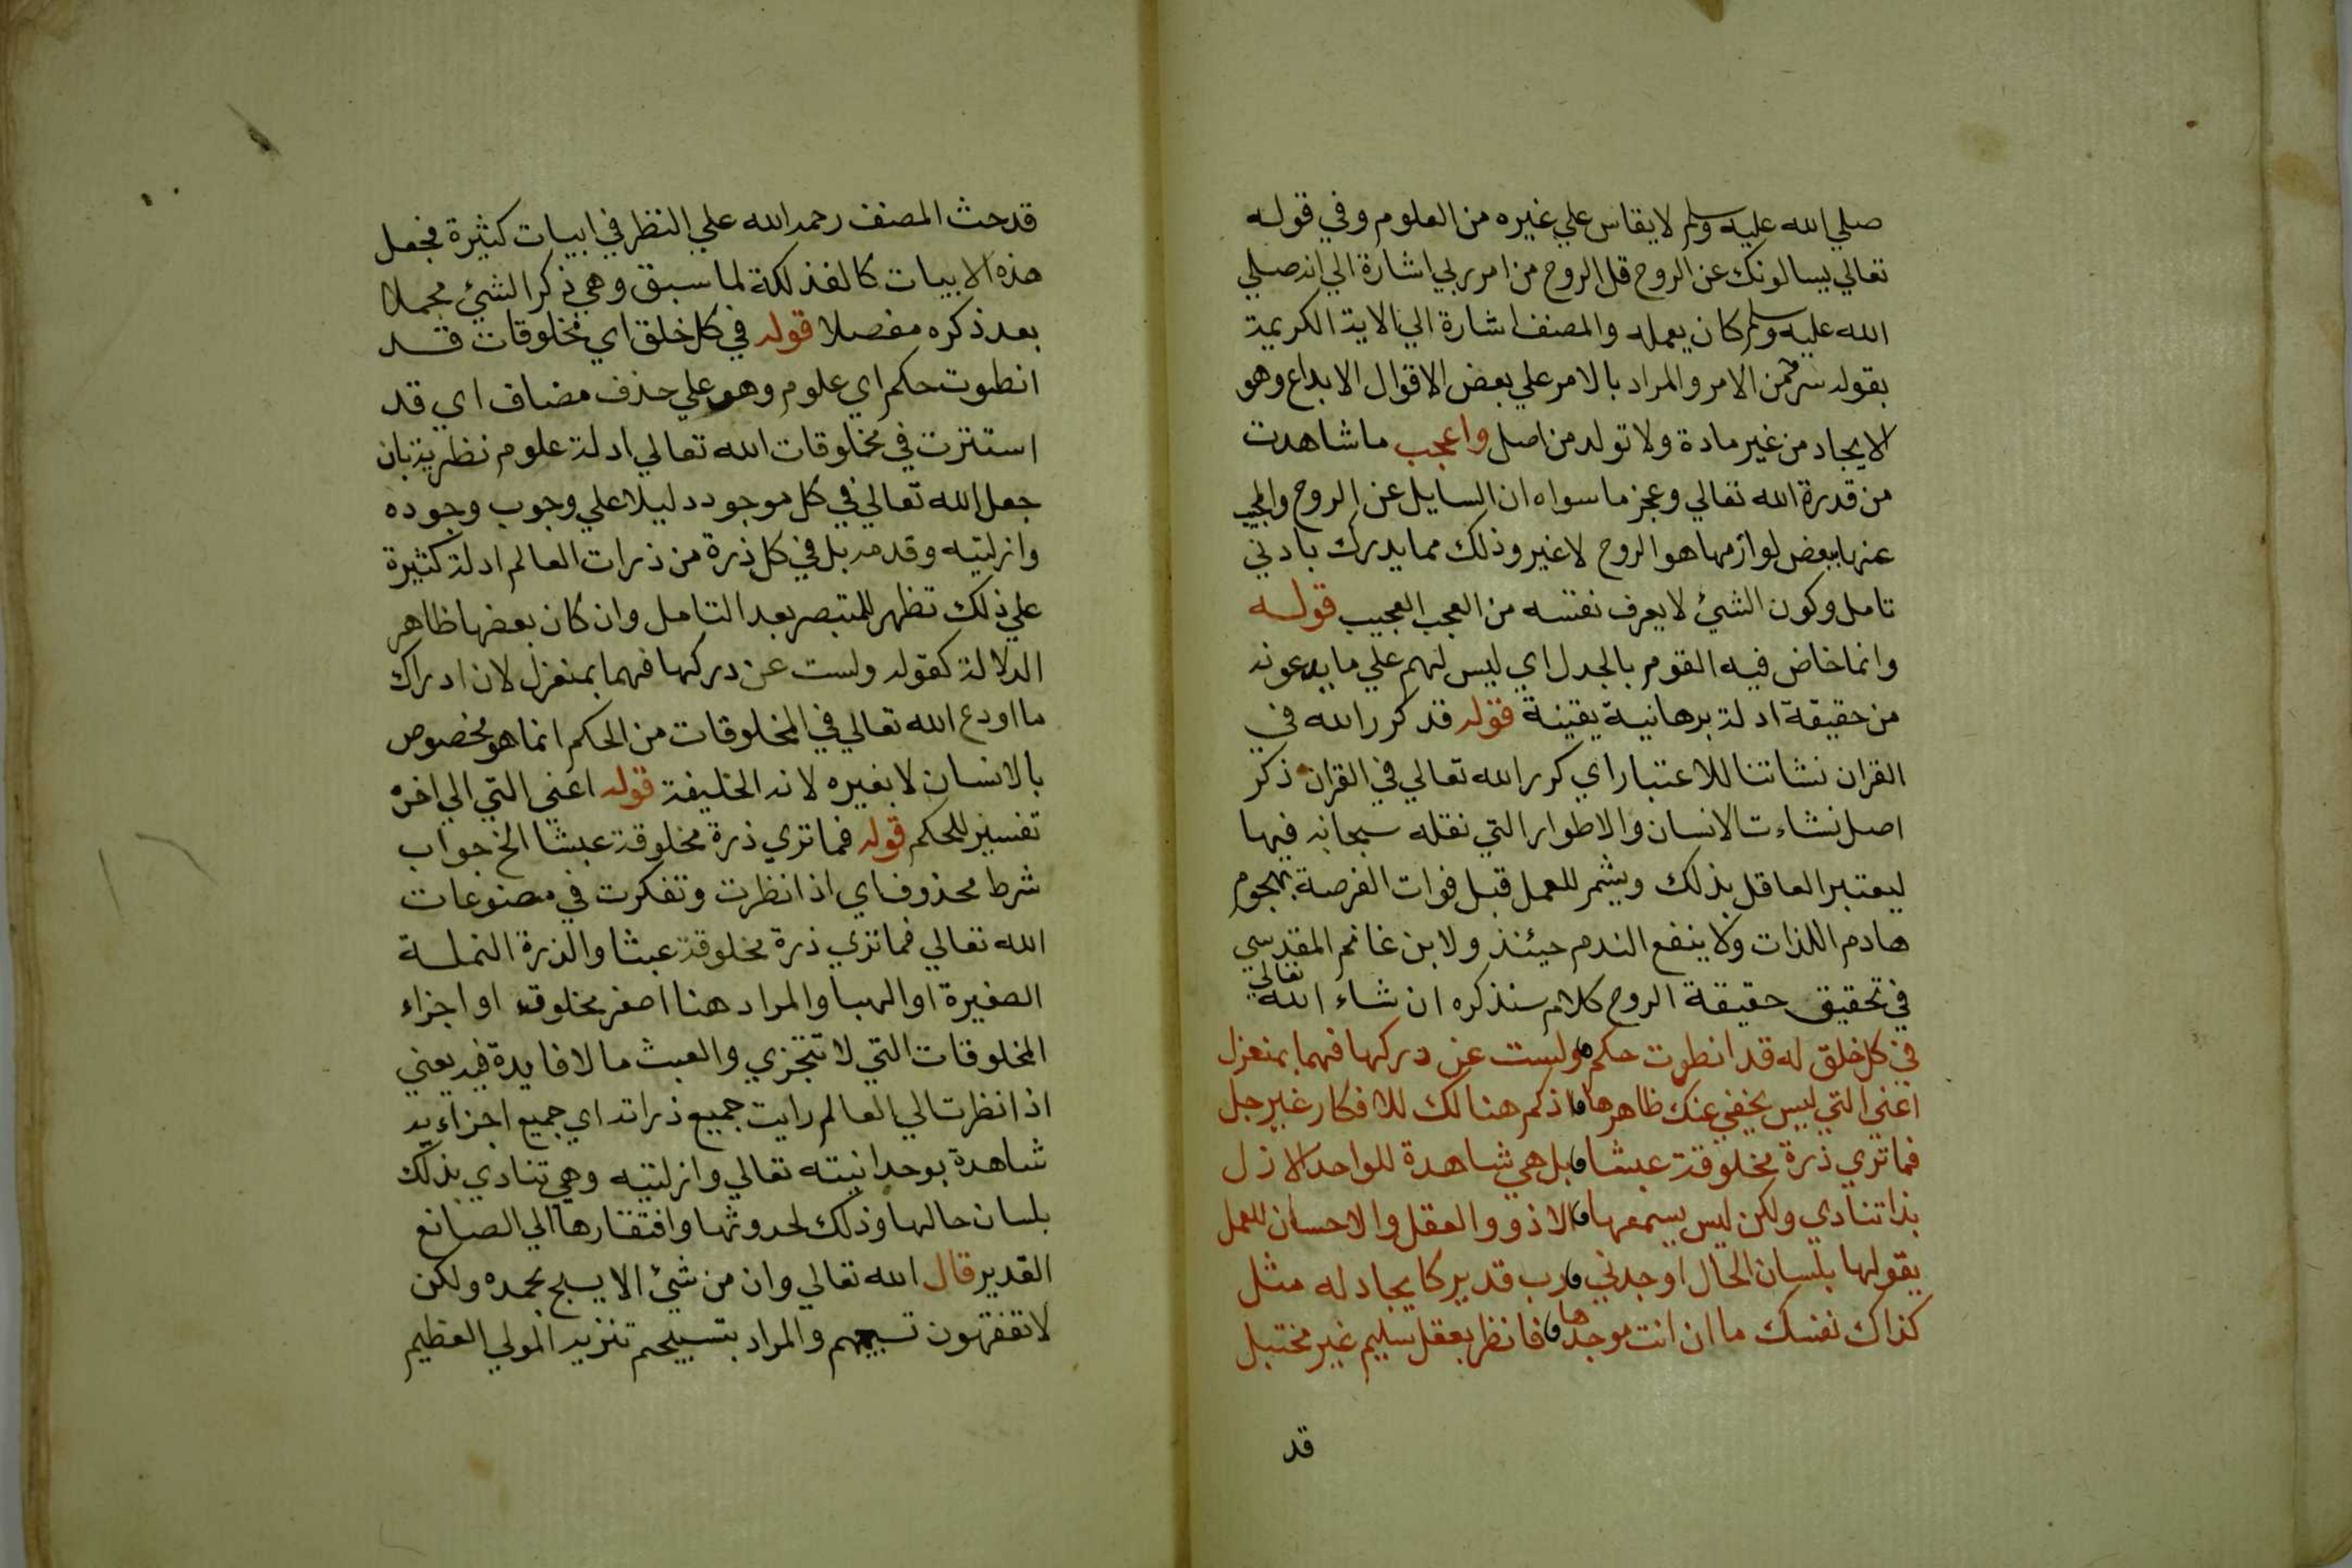 صلي الله عليه وسلم لا يقاس علي غيره من العلوم وفي قوله
تعالي يسالونك عن الروح قل الروح من امر ربي اشارة الي انه صلي
الله عليه وسلم كان يعمله والمصنف اشارة الي الاية الكريمة
بقوله سر من الامر والمراد بالامر علي بعض الاقوال الابداع وهو
الايجاد من غير مادة ولا تولد من اصل واعجب ما شاهدت
من قدرة الله تعالي وعجز ما سواه ان السايل عن الروح والمجيب
عنها ببعض لوازمها هو الروح لا غير وذلك مما يدرك بادني
تامل وكون الشيئ لا يعرف نفسه من العجب العجيب قوله
وانما خاض فيه القوم بالجدل اي ليس لهم علي ما يدعونه
من حقيقة ادلة برهانية يقينة قوله قد كرر الله في
القران نشاتنا للاعتبار اي كرر الله تعالي في القران ذكر
اصل نشاءت الانسان والاطوار التي نقله سبحانه فيها
ليعتبر العاقل بذلك ويشمر للعمل قبل فوات الفرصة بهجوم
هادم اللذات ولا ينفع الندم حيئنذ ولابن غانم المقدسي
في تحقيق حقيقة الروح كلام سنذكره ان شاء الله تعالي
في كل خلق له قد انطوت حكم ولست عن دركها فهما بمنعزل
اعني التي ليس يخفي عنك ظاهرها اذ كم هنالك للافكار غير جل
فما تري ذرة مخلوقة عبثا بل هي شاهدة للواحد الازل
بذا تنادي ولكن ليس يسمعها الا ذوو العقل والاحسان للعمل
يقولها بلسان الحال اوجدني رب قدير كايجاد له مثل
كذاك نفسك ما ان انت موجدها فانظر بعقل سليم غير مختبل
قد
قد حث المصنف رحمه الله علي النظر في ابيات كثيرة فجعل
هذه الابيات كالفذلكة لما سبق وهي ذكر الشيئ مجملا
بعد ذكره مفصلا قوله في كل خلق اي مخلوقات قد
انطوت حكم اي علوم وهو علي حذف مضاف اي قد
استترت في مخلوقات الله تعالي ادلة علوم نظرية بان
جعل الله تعالي في كل موجود دليلا علي وجوب وجوده
وازليته وقدمه بل في كل ذرة من ذرات العالم ادلة كثيرة
علي ذلك تظهر للمتبصر بعد التامل وان كان بعضها ظاهر
الدلالة كقوله ولست عن دركها فهما بمنعزل لان ادراك
ما اودع الله تعالي في المخلوقات من الحكم انما هو مخصوص
بالانسان لا بغيره لانه الخليفة قوله اعني التي الي اخره
تفسير للحكم قوله فما تري ذرة مخلوقة عبثا الخ جواب
شرط محذوف اي اذا نظرت وتفكرت في مصنوعات
الله تعالي فما تري ذرة مخلوقة عبثا والذرة النملة
الصغيرة او الهبا والمراد هنا اصغر مخلوقه او اجزاء
المخلوقات التي لا تتجزي والعبث ما لا فايدة فيه يعني
اذا نظرت الي العالم رايت جميع ذراته اي جميع اجزاءيه
شاهدة بوحدانيته تعالي وازليته وهي تنادي بذلك
بلسان حالها وذلك لحدوثها وافتقارها الي الصانع
القدير قال الله تعالي وان من شيئ الا يسبح بحمده ولكن
لا تفقهون تسبيحهم والمراد بتسبيحهم تنزيه المولي العظيم